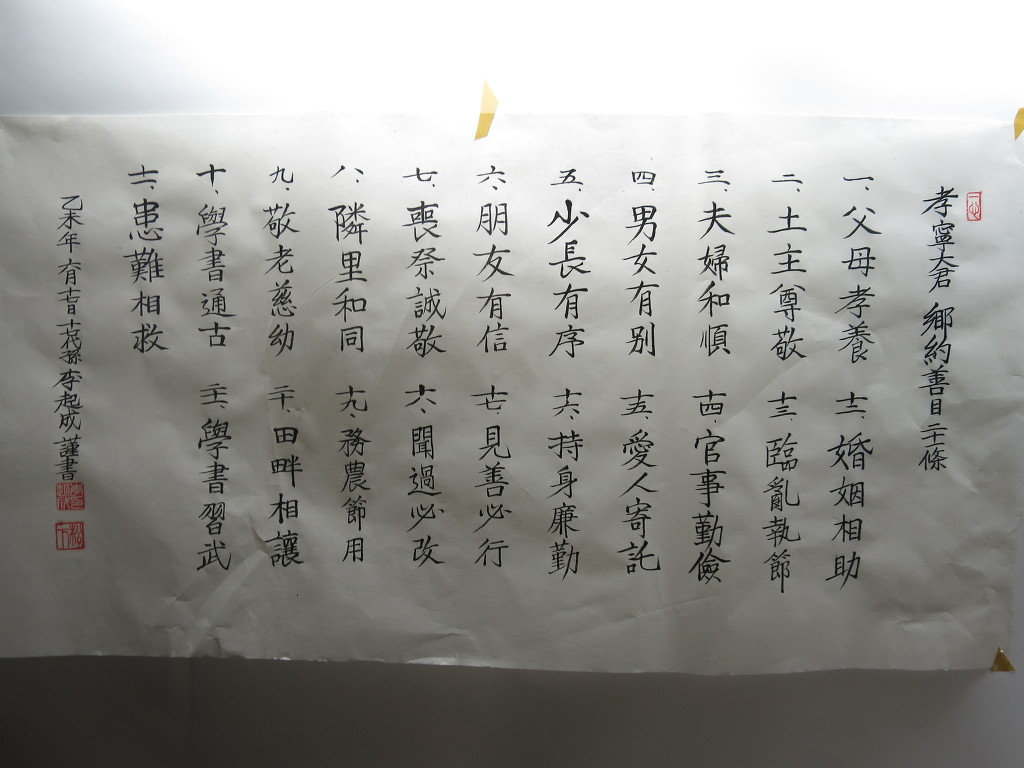 孝寧大君 鄕約善目二十條
一、父母孝養 十二、婚姻相助
二、土主尊敬 十三、臨亂執節
三、夫婦和順 十四、官事勤儉
四、男女有别 十五、愛人寄託
五、少長有序 十六、持身廉勤
六、朋友有信 十七、見善必行
七、喪祭誠敬 十八、聞過必改
八、隣里和同 十九、務農節用
九、敬老慈幼 二十、田畔相讓
十、學書通古 二十一、學書習武
十一、患難相救
乙未年 代孫 李起成 謹書